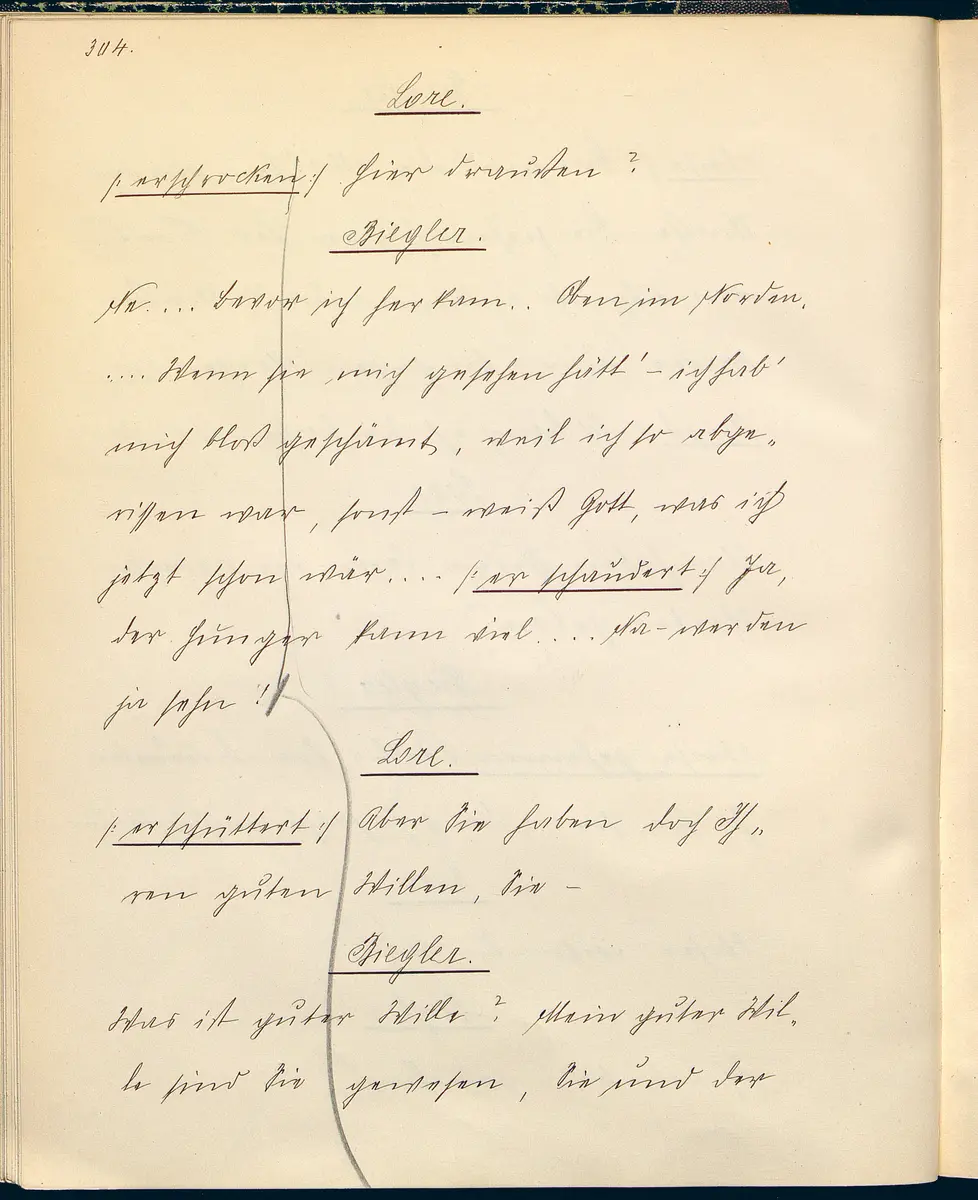 304.
Lore.
/: erschrocken :/ Hier draußen?
Biegler.
Ne. ... Bevor ich herkam.. Oben im Norden.
.... Wenn sie mich gesehen hätt' – ich hab'
mich bloß geschämt, weil ich so abge-
rissen war, sonst – weiß Gott, was ich
jetzt schon wär.... /: er schaudert :/ Ja,
der Hunger kann viel.... Na – werden
ja sehn!
Lore.
/: erschüttert :/ Aber Sie haben doch Ih-
ren guten Willen, Sie –
Biegler.
Was ist guter Wille? Mein guter Wil-
le sind Sie gewesen, Sie und der